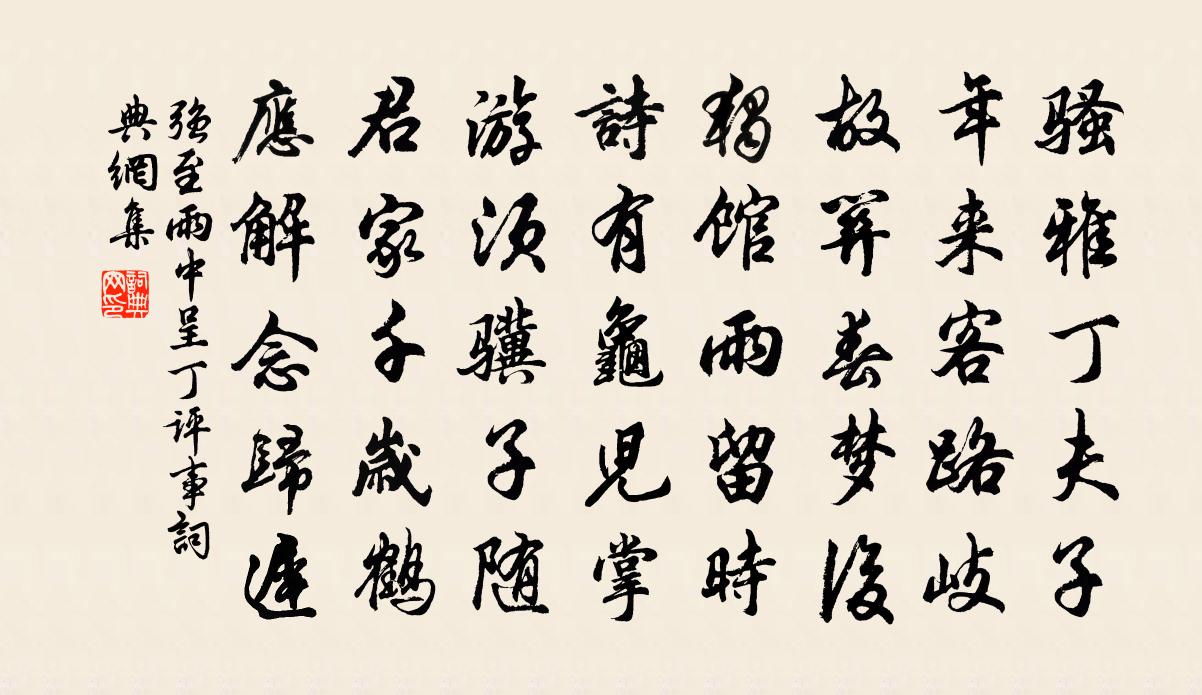 骚雅丁夫子
年来客路歧
故笄春梦後
獨馆雨留時
詩有龜児掌
游須驥子随
君家千歳鶴
應解念歸遲
强至雨中呈丁評事詞
典網集
詞典網印